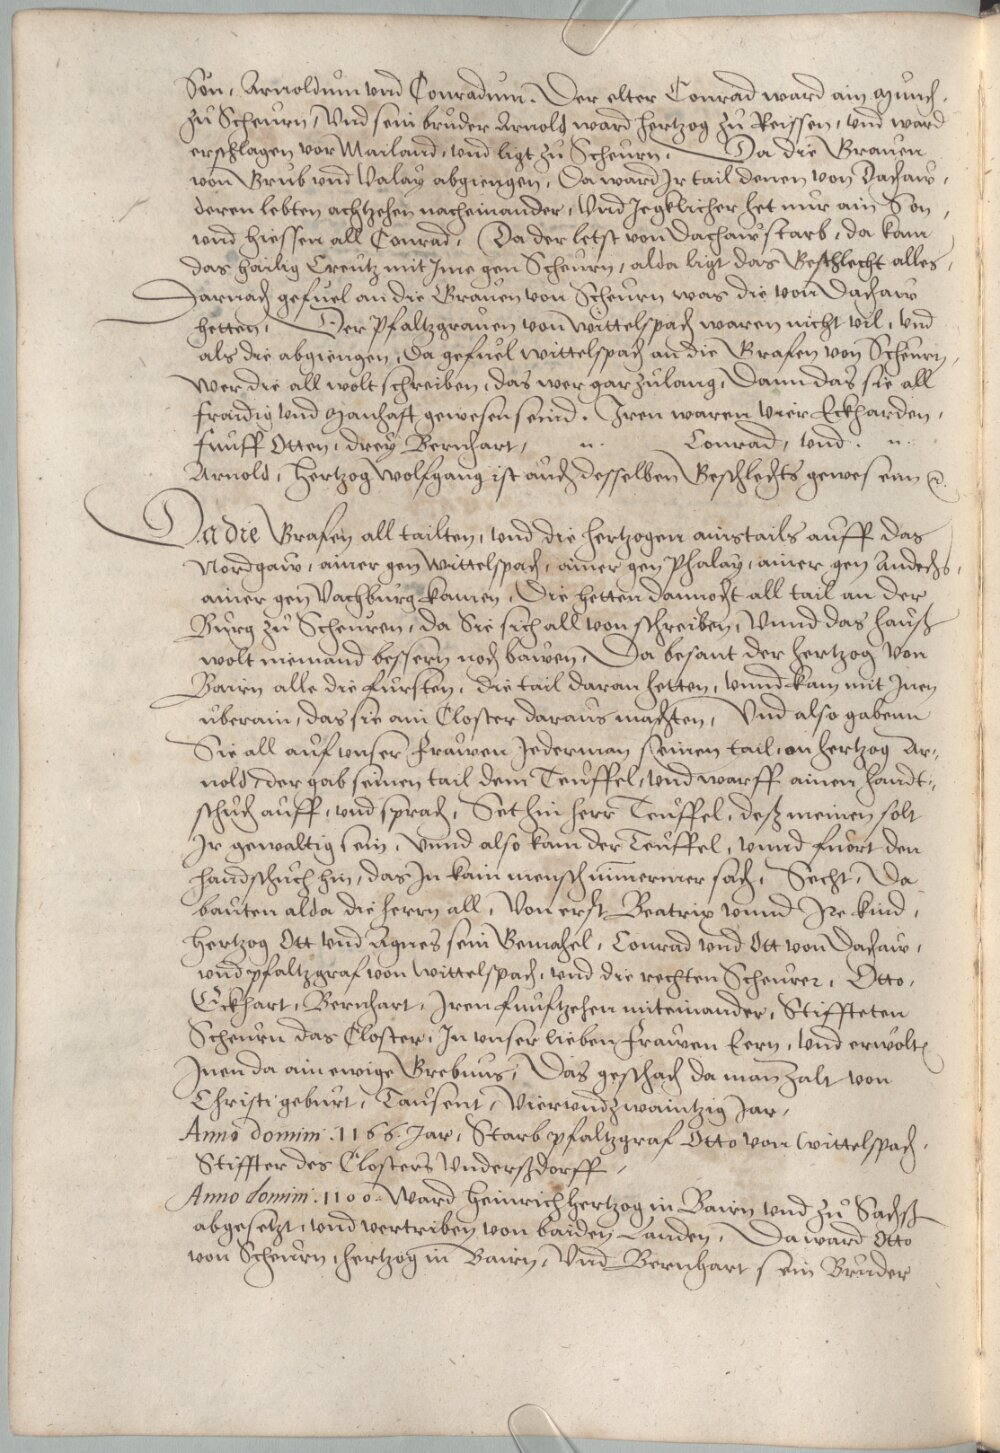 Sön, Arnoldum vnd Conradum. Der elter Conrad ward ain Munch,
zů Scheurn, Vnd sein brůder Arnold ward Hertzog zů Reissen, vnd ward
erschlagen vor Mailand, vnd ligt zů Scheurn, Da die Grauen
von Grub vnd Valay abgiengen, Da ward Jr tail denen von Dachaw,
deren lebten achtzehen nacheinander, Vnd Jegklicher het nur ain Son,
vnd hiessen all Conrad, Da der letst von Dachaw starb, da kam
das hailig Creutz mit Jme gen Scheurn, alda ligt das Geschlecht alles,
Darnach gefuel an die Grauen von Scheurn was die von Dachaw
hetten, Der Pfaltzgrauen von Wittelspach waren nicht vil, Vnd
als die abgiengen, Da gefuel Wittelspach an die Grafen von Scheurn,
Wer die all wolt schreiben, das wer gar zůlang, Dann das sie all
fraidig vnd Manhaft gewesen seind. Jren waren vier Eckharden,
funff Otten, drey Bernhart, n. Conrad, vnd . n.
Arnold, Hertzog Wolfgang ist auch desselben Geschlechts gewesenn
Da die Grafen all tailten, vnd die hertzogen ainstails auff das
Nordgaw, ainer gen Wittelspach, ainer gen Phalay, ainer gen Andechs,
ainer gen Vachburg kamen, Die hetten dannocht all tail an der
Burg zů Scheuren, da Sie sich all von schreiben, Vnnd das hauß
wolt niemand bessern noch bawen, Da besant der Hertzog von
Bairn alle die Fursten, die tail daran hetten, vnnd kam mit Jnen
uberain, das sie ain Closter daraus machten, Vnd also gabenn
Sie all auf vnser Frawen Jederman seinen tail, on Hertzog Ar-
nold, der gab seinen tail dem Teuffel, vnd warff ainen handt-
schuch auff, vnd sprach, Seht hin herr Teuffel, deß meinen solt
Jr gewaltig sein, Vnnd also kam der Teuffel, vnnd fuort den
handschuch hin, das Jn kain mensch nimmermer sach, Secht, Da
bauten alda die Herrn all, Von erst Beatrix vnnd Jre kind,
Hertzog Ott vnd Agnes sein Gemahel, Conrad vnd Ott von Dachaw,
vnd pfaltzgraf von Wittelspach, vnd die rechten Scheurer, Otto,
Eckhart, Bernhart, Jren funftzehen miteinander, Stiffteten
Scheurn das Closter, Jn vnser lieben Frawen Eern, Vnd erwölt
Jnen da ain ewige Grebnus, Das geschach da man zalt von
Christi geburt, Tausent, Vierundzwaintzig Jar,
Anno domini .1166. Jar, Starb pfaltzgraf Otto von Wittelspach,
Stiffter des Closters Vnderßdorff,
Anno domini .1100. Ward Heinrich Hertzog in Bairn vnd zů Sachß
abgesetzt, vnd vertriben von baiden Landen, Da ward Otto
von Scheurn, Hertzog in Bairn, Vnd Bernhart sein Brüder